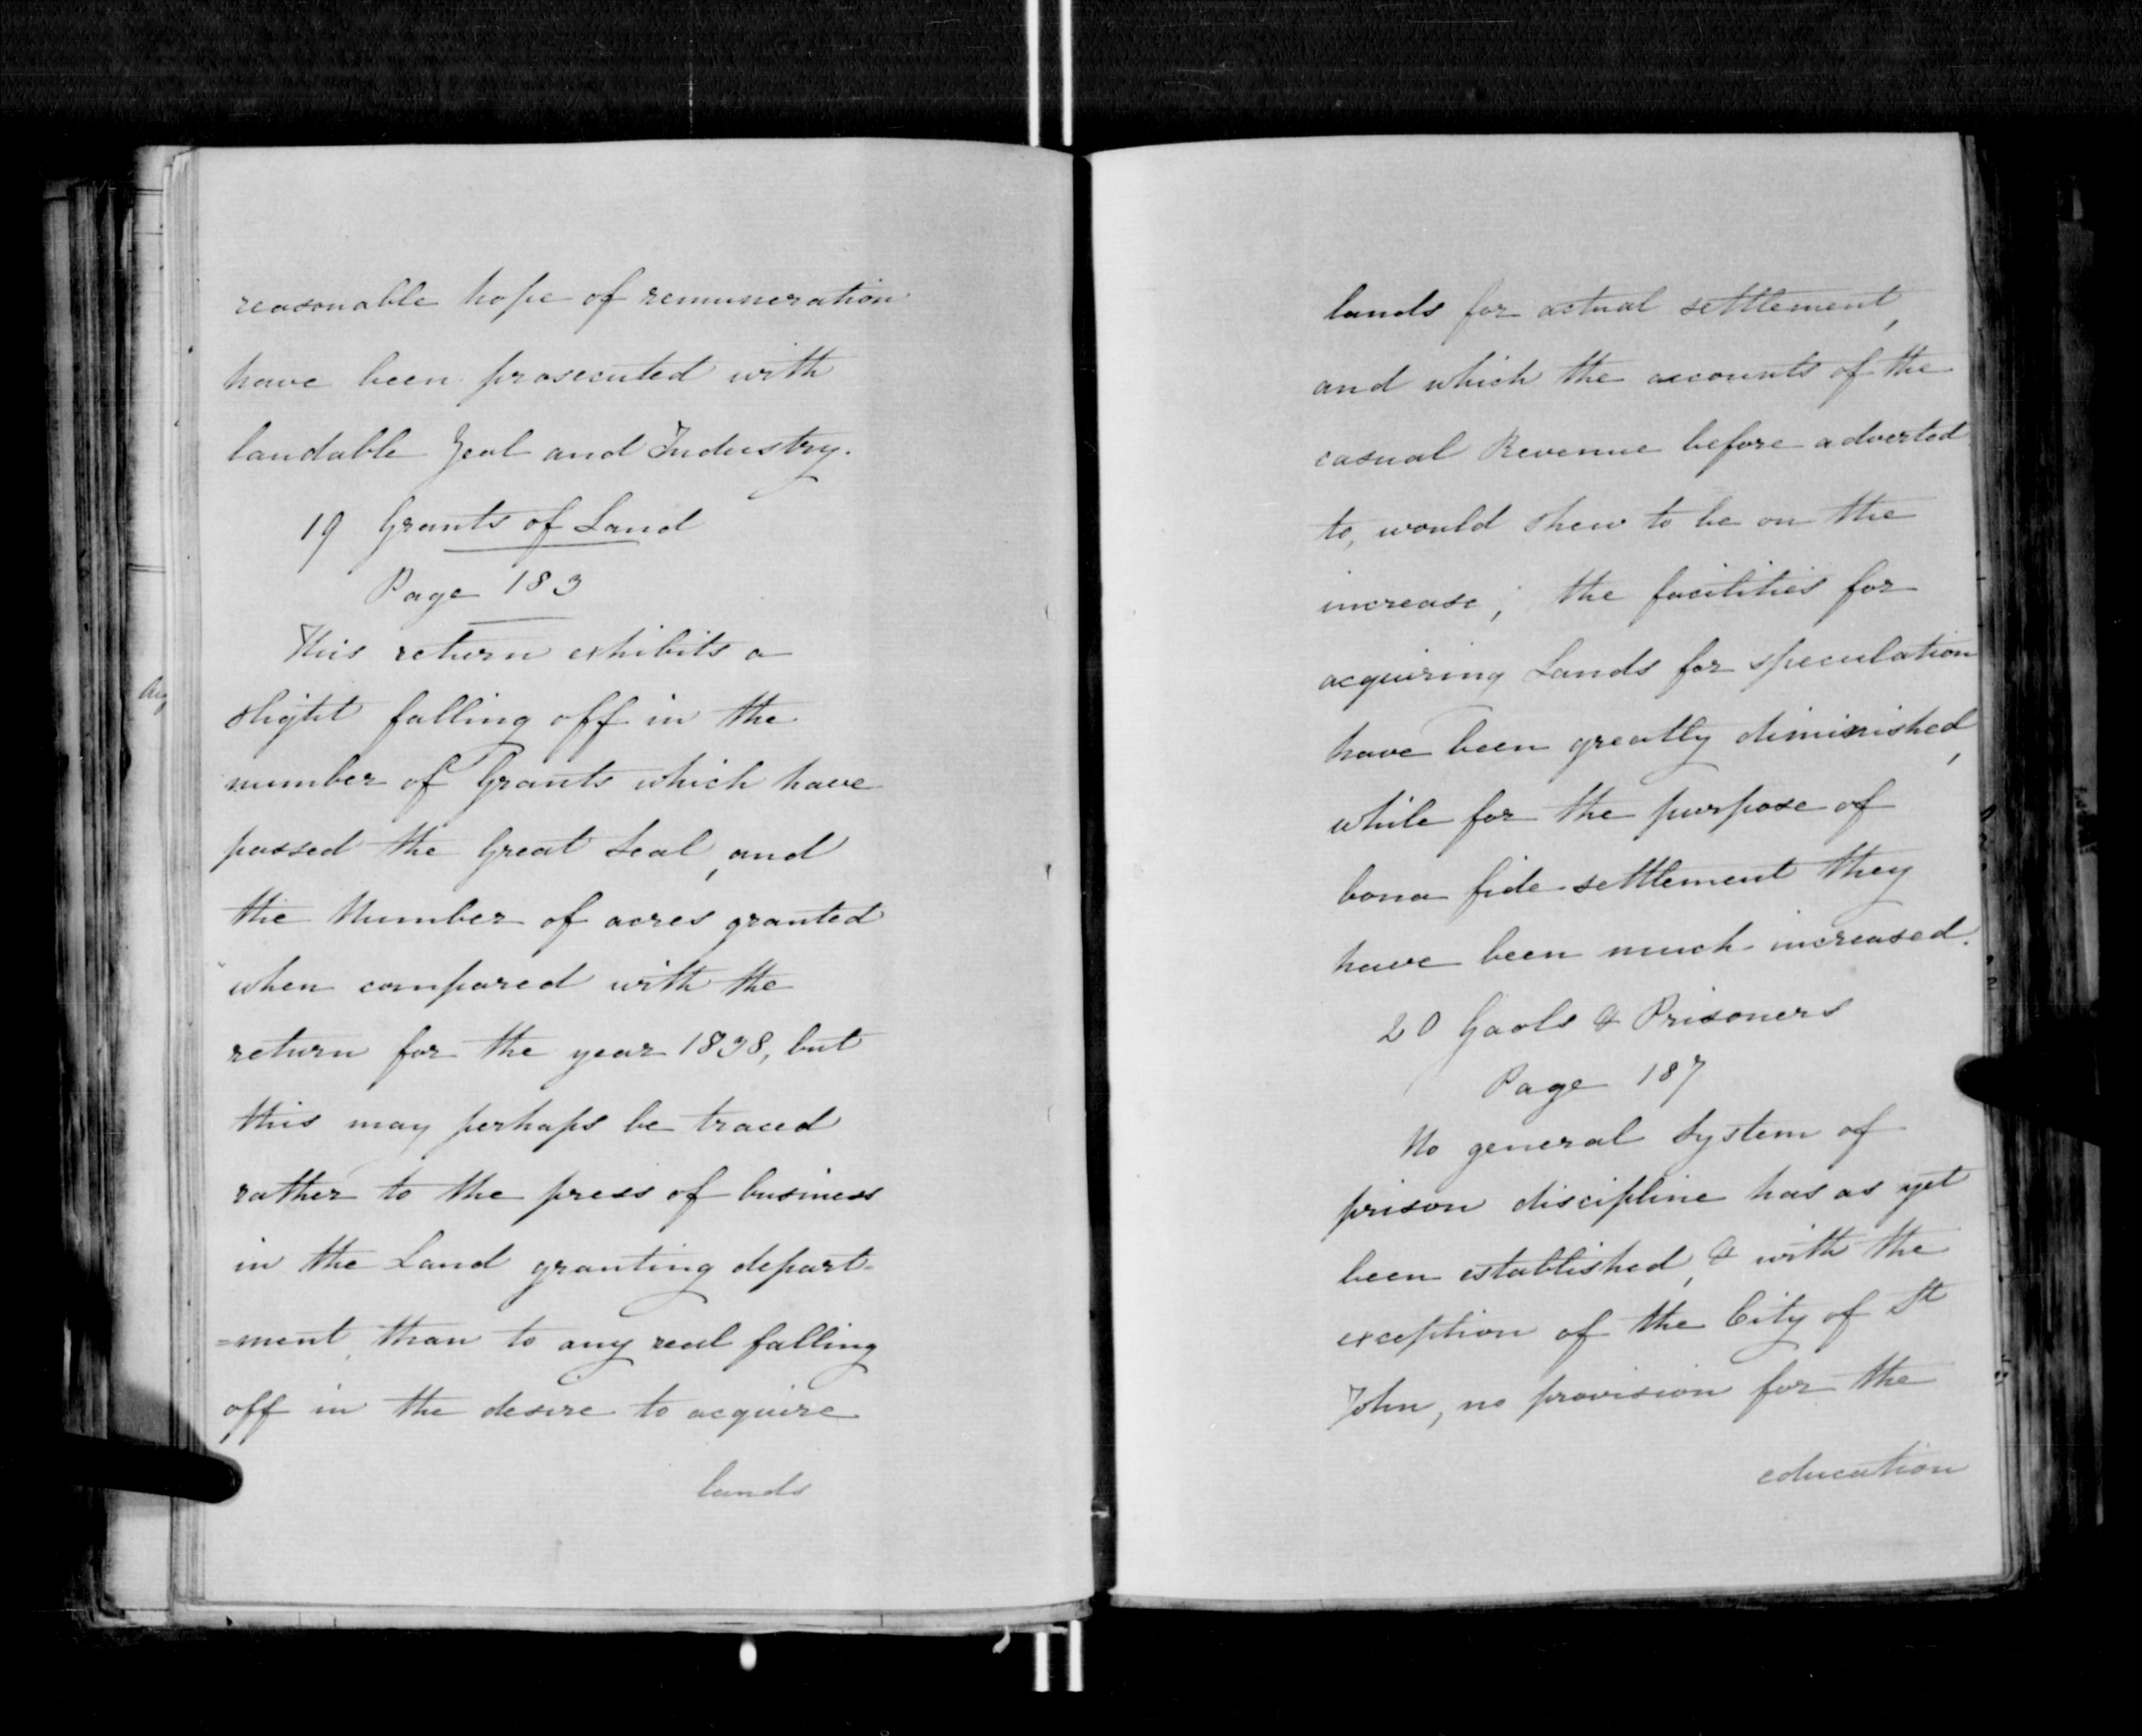 reasonable hope of remuneration
have been prosecuted with
laudable Zeal and Industry.
19 Grants of Land
Page 183
This return exhibits a
slight falling off in the
number of Grants which have
passed the Great Seal, and
the Number of acres granted
when compared with the
return for the year 1838, but
this may perhaps be traced
rather to the press of business
in the Land granting depart-
=ment, than to any real falling
off in the desire to acquire
lands
lands for actual settlement,
and which the accounts of the
casual Revenue before adverted
to, would shew to be on the
increase; the facilities for
acquiring Lands for speculation
have been greatly diminished,
while for the purpose of
bona fide settlement they
have been much increased.
20 Gaols & Prisoners
Page 187
No general System of
prison discipline has as yet
been established, & with the
exception of the City of St
John, no provision for the
education